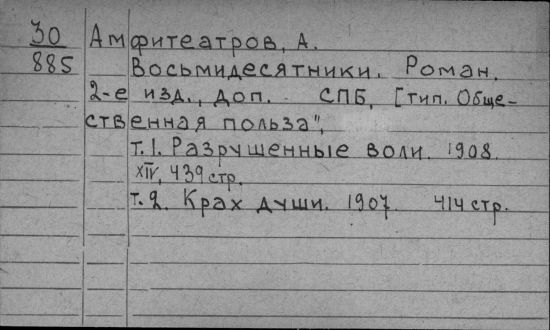 30 Амфитеатров, А.
885 Восьмидесятники. Роман.
2-е изд., доп. СПБ, [тип. Обще-
ственная польза",
т.1. Разрушенные воли. 1908.
XIV, 439 стр.
т.2. Крах души. 1907. 414 стр.